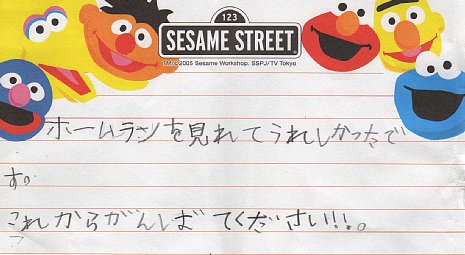 123
SESAME STREET
TM/©2005 Sesame Workshop. SSPJ/TV Tokyo
ホームランを見れてうれしかったで
す。
これからがんしばてください!!!。